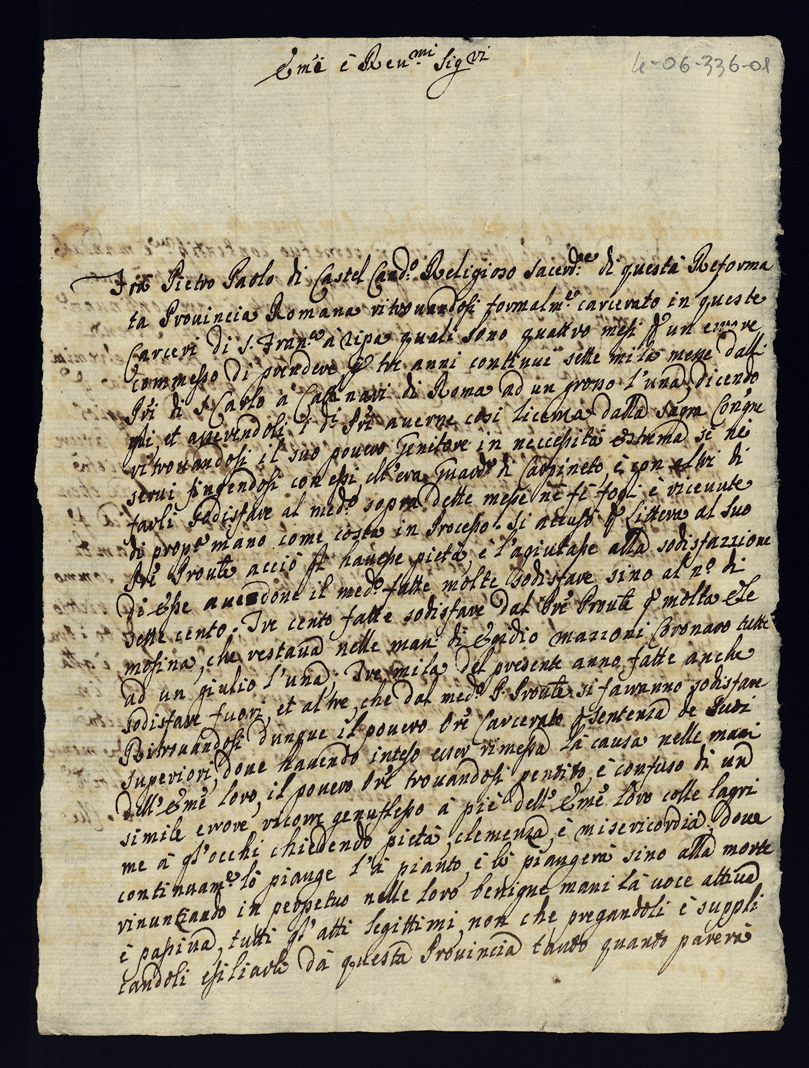 Emi è Reu.mi Sigri
4-06-336-01
Frà Pietro Paolo di Castel Cand.o Religioso Sacerd.te di questa Reforma
ta Prouincia Romana ritrouandosi formalm.te carcerato in queste
Carceri di S. Fran.co a ripa quali sono quattro mesi p un errore
commesso di prendere p tre anni continui sette mila messe dalli
Pri di S. Carlo à Catinari di Roma ad un grosso l'una, dicendo
gli et asserendoli d.i Pri auerne cosi licenza dalla Sagra Congne
ritrouandosi il suo pouero Genitore in neccessità estrema se ne
serui fingendosi con essi, ch'era Guard.o di Carpineto, è con altri di
farli sodisfare al med.o sopra dette messe ne fe fogl è riceuute
di prop.a mano come costa in Processo. Si accusò p littera al suo
Pre Proule acciò gli hauesse pietà, e l'agiutasse alla sodisfazzione
di esse auendone il med.o fatte molte sodisfare sino al n.o di
sette cento. Tre cento fatte sodisfare dal Pre Proule p molta Ele
mosina, che restaua nelle man: di Egidio Mazzoni Coronaro tutte
ad un giulio l'una. Tre mila del presente anno fatte anche
sodisfare fuori, et altre, che dal med.o P. Proule si faranno sodisfare
Ritrouandosi dunque il pouero Ore Carcerato p sentenza de Suoi
superiori, doue hauendo inteso esser rimessa la causa nelle mani
dell'Eme loro, il pouero Ore trouandosi pentito, è confuso di un
simile errore, ricorre genuflesso à piè dell'Eme loro colle lagri
me à gl'occhi chiedendo pietà, clemenza, è misericordia, doue
continuam.te lo piange l'à pianto, è lo piangerà sino alla morte
rinunziando in perpetuo nelle loro benigne mani la uoce attiua
è passiua, tutti gl'atti legittimi, non che pregandoli è suppli
candoli esiliarlo da questa Prouincia tanto quanto parerà